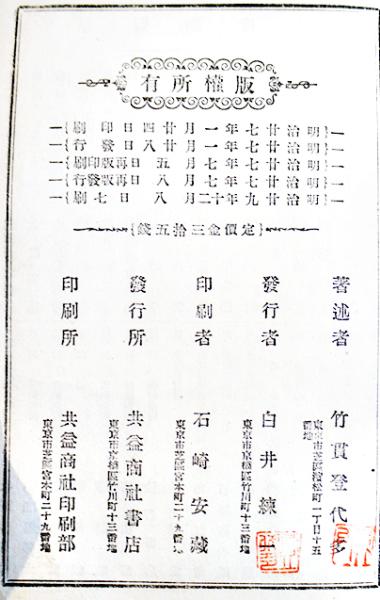 版權所有
明治廿七年一月廿四日印刷
明治廿七年一月廿八日發行
明治廿七年七月五日再版印刷
明治廿七年七月八日再版發行
明治廿九年十二月八日七刷
定價金三拾五錢
著述者 竹貫登代多
東京市芝區濱松町一丁目十五番地
發行者 白井練
東京市京橋區竹川町十三番地
印刷者 石崎安藏
東京市芝區宮本町二十九番地
發行所 共益商社書店
東京市京橋區竹川町十三番地
印刷所 共益商社印刷部
東京市芝區宮本町二十九番地